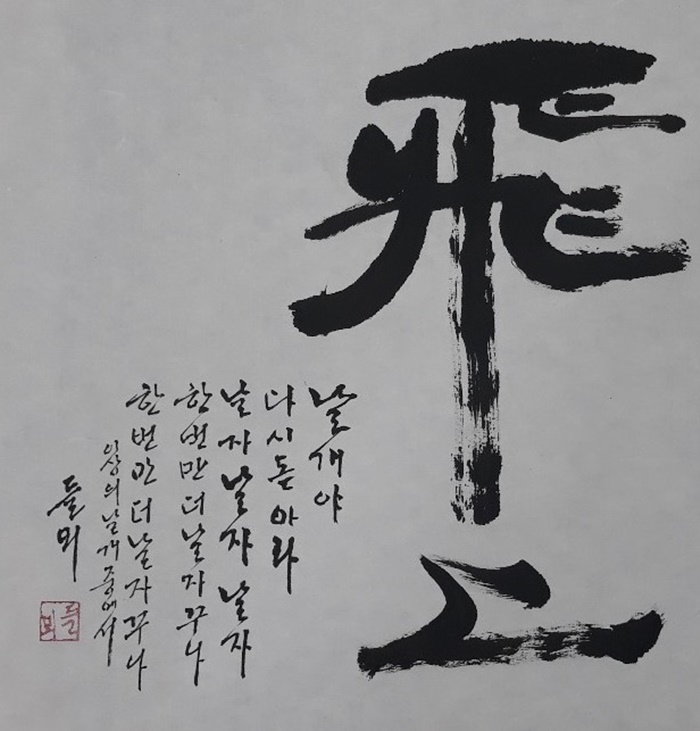 飛上
날개야
다시 돋아라
날자 날자 날자
한번만 더 날자꾸나
한번만 더 날자꾸나
이상의 날개 중에서
들뫼
들뫼